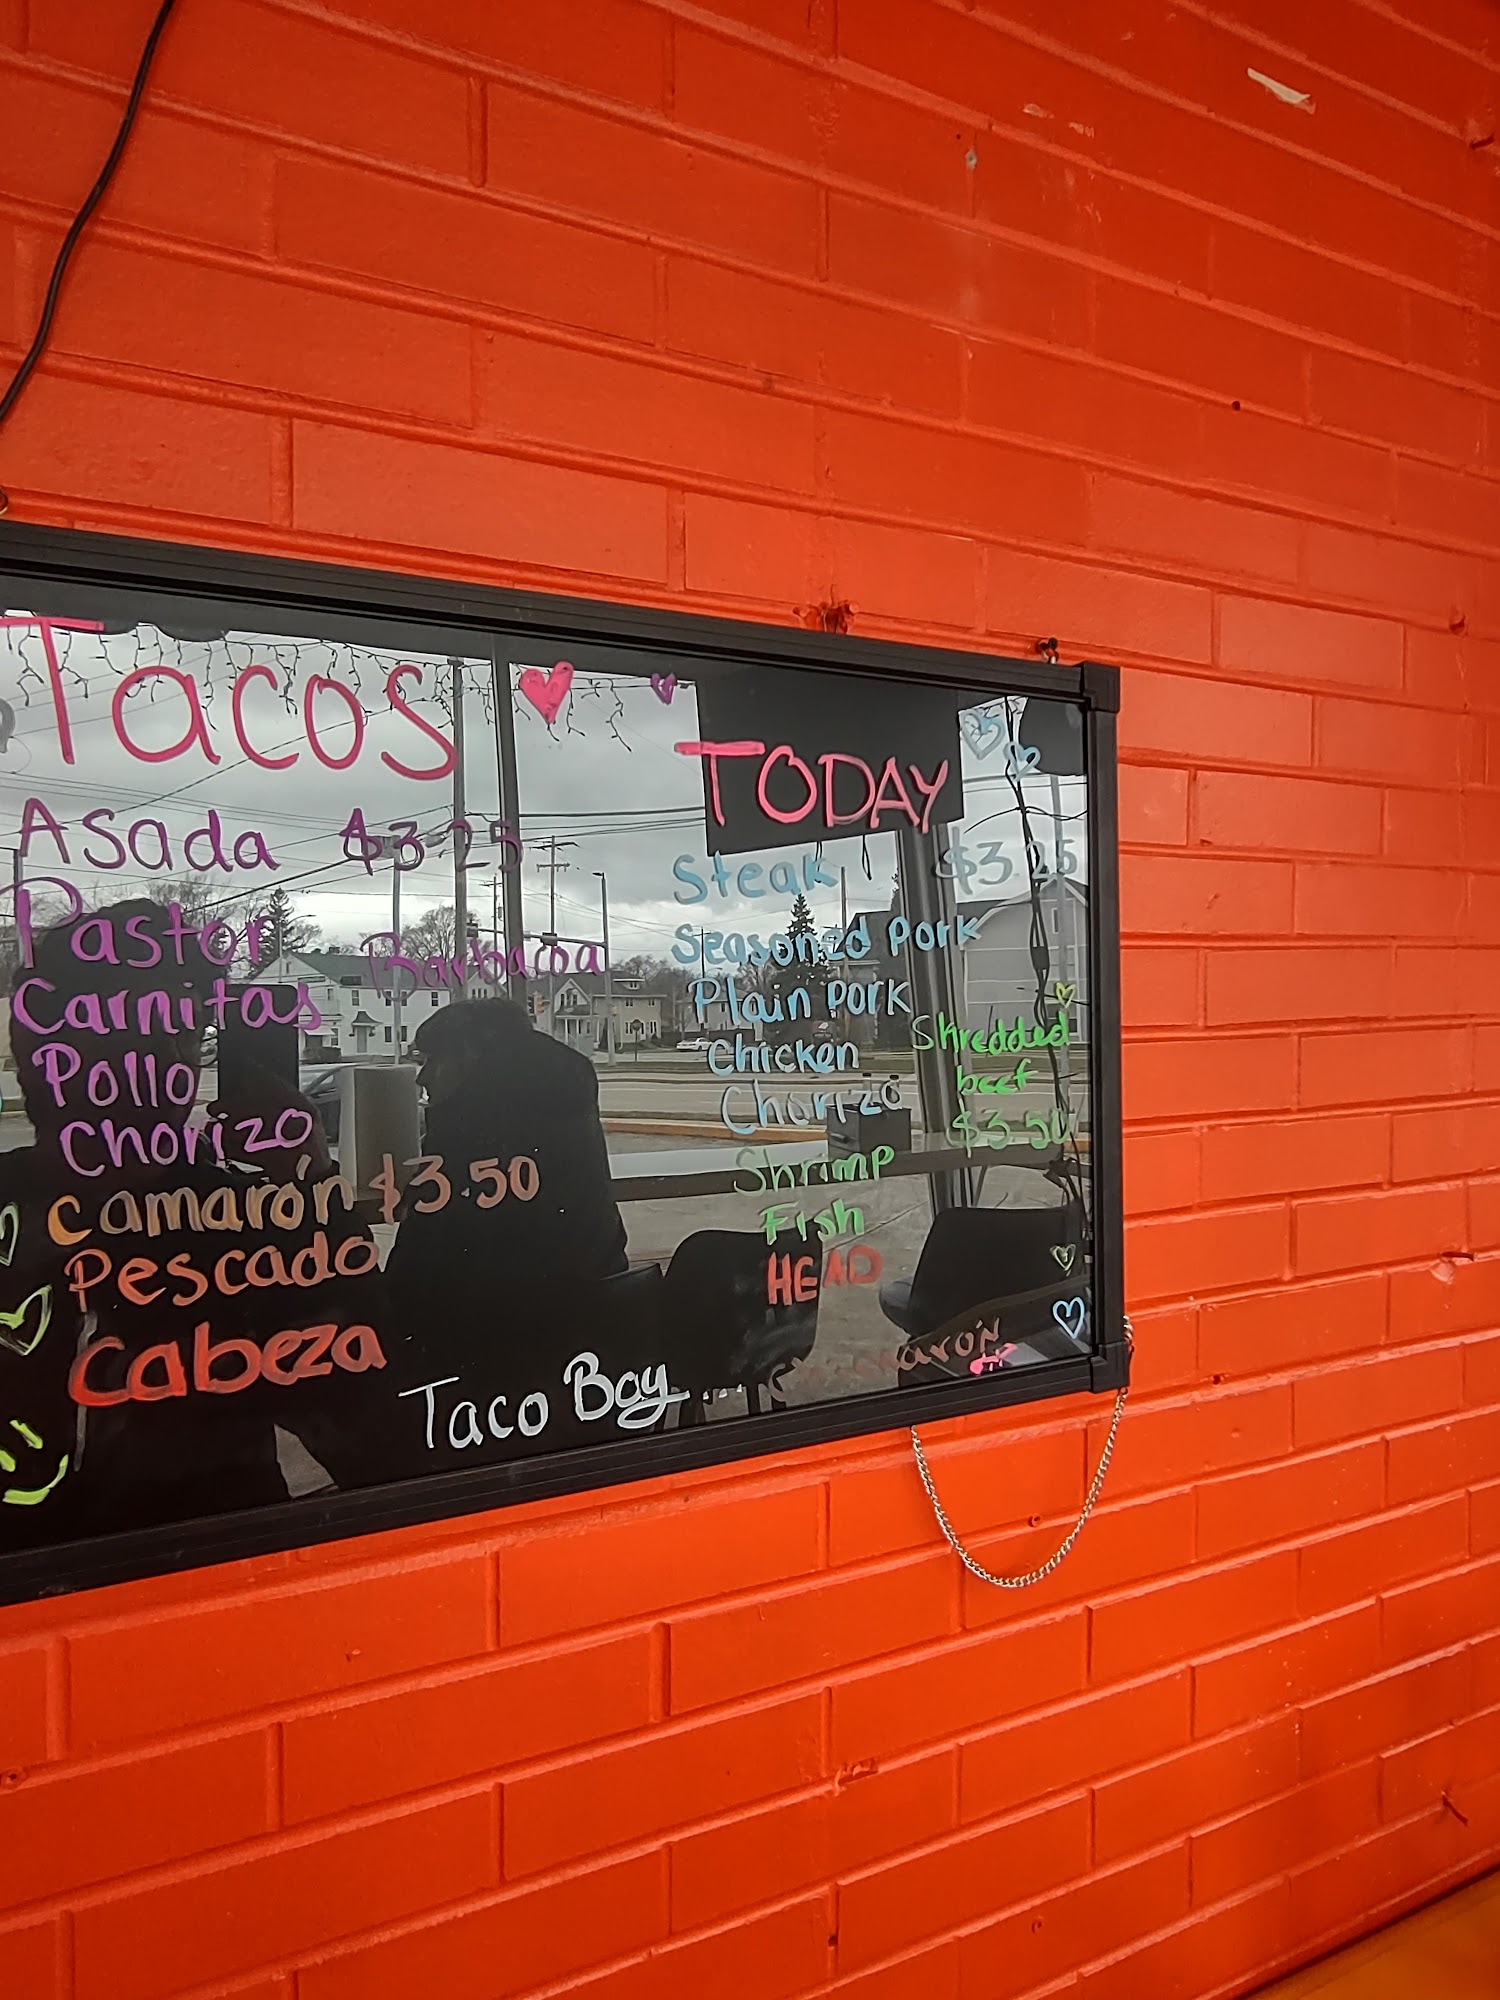 Tacos
Asada $3.25
Pastor
Barbacoa
Carnitas
Pollo
Chorizo
camarón $3.50
Pescado
Cabeza
Taco Boy
TODAY
Steak $3.25
Seasoned Pork
Plain Pork
Chicken
Chorizo
Shredded
beef
$3.50
Shrimp
Fish
HEAD